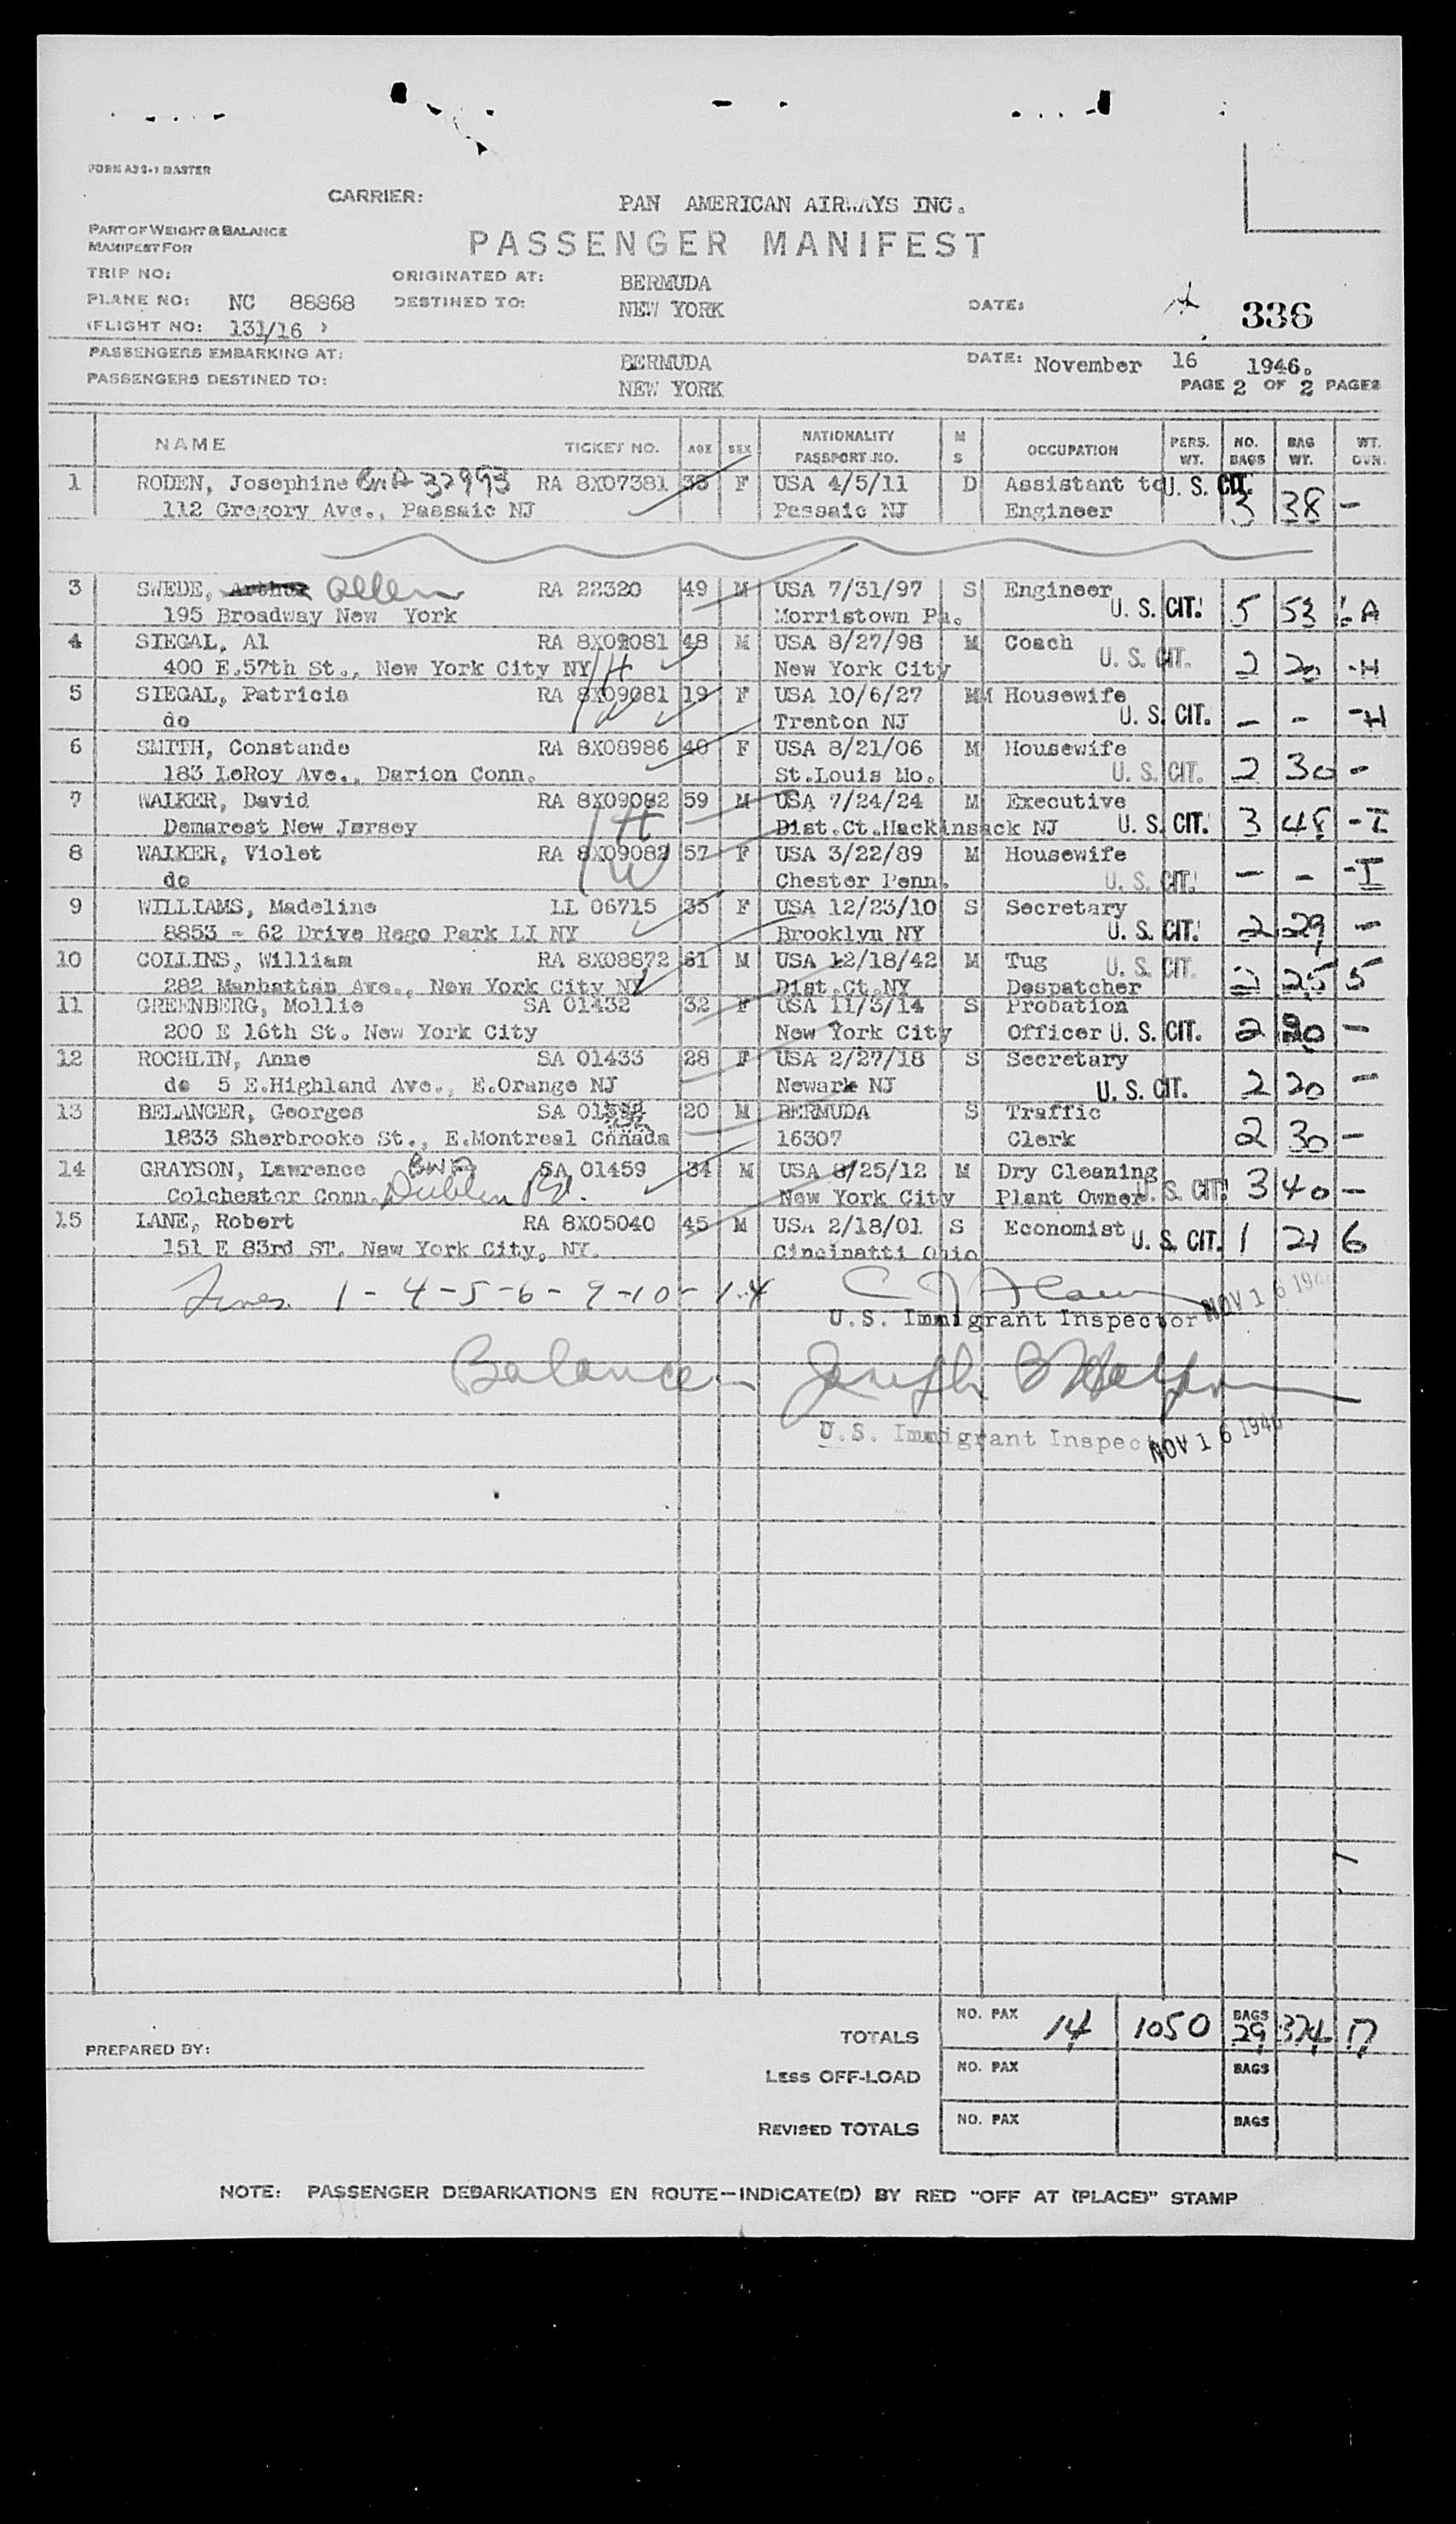 FORM A33-1 MASTER
CARRIER: PAN AMERICAN AIRWAYS INC.
PART OF WEIGHT & BALANCE
MANIFEST FOR
PASSENGER MANIFEST
TRIP NO: ORIGINATED AT: BERMUDA
PLANE NO: NC 88868 DESTINED TO: NEW YORK DATE: 336
(FLIGHT NO: 131/16 )
PASSENGERS EMBARKING AT: BERMUDA DATE: November 16 1946.
PASSENGERS DESTINED TO: NEW YORK PAGE 2 OF 2 PAGES
NAME TICKET NO. AGE SEX NATIONALITY PASSPORT NO. M S OCCUPATION PERS. WT. NO. BAGS BAG WT. WT. OVN.
1 RODEN, Josephine BWA 32993 RA 8X07381 35 F USA 4/5/11 D Assistant to U. S. CIT. 3 38 -
112 Gregory Ave., Passaic NJ Passaic NJ Engineer
3 SWEDE, Arthur Allen RA 22320 49 M USA 7/31/97 S Engineer U. S. CIT. 5 53 A
195 Broadway New York Morristown Pa.
4 SIEGAL, Al RA 8X09081 48 M USA 8/27/98 M Coach U. S. CIT. 2 20 -H
400 E.57th St., New York City NY H New York City
5 SIEGAL, Patricia RA 8X09081 19 F USA 10/6/27 M Housewife U. S. CIT. - - -H
do W Trenton NJ
6 SMITH, Constande RA 8X08986 40 F USA 8/21/06 M Housewife U. S. CIT. 2 30 -
183 LeRoy Ave., Darion Conn. St.Louis Mo.
7 WALKER, David RA 8X09082 59 M USA 7/24/24 M Executive U. S. CIT. 3 48 -I
Demarest New Jersey H Dist.Ct.Hackinsack NJ
8 WALKER, Violet RA 8X09082 57 F USA 3/22/89 M Housewife U. S. CIT. - - -I
do W Chester Penn.
9 WILLIAMS, Madeline LL 06715 35 F USA 12/23/10 S Secretary U. S. CIT. 2 29 -
8853 - 62 Drive Rego Park LI NY Brooklyn NY
10 COLLINS, William RA 8X08872 61 M USA 12/18/42 M Tug U. S. CIT. 2 25 5
282 Manhattan Ave., New York City NY Dist.Ct.NY Despatcher
11 GREENBERG, Mollie SA 01432 32 F USA 11/3/14 S Probation
200 E 16th St. New York City New York City Officer U. S. CIT. 2 20 -
12 ROCHLIN, Anne SA 01433 28 F USA 2/27/18 S Secretary
do 5 E.Highland Ave., E.Orange NJ Newark NJ U. S. CIT. 2 20 -
13 BELANGER, Georges SA 20 M BERMUDA S Traffic
1833 Sherbrooke St., E.Montreal Canada 16307 Clerk 2 30 -
14 GRAYSON, Lawrence BWA SA 01459 34 M USA 8/25/12 M Dry Cleaning
Colchester Conn. Dublin Rd. New York City Plant Owner U. S. CIT. 3 40 -
15 LANE, Robert RA 8X05040 45 M USA 2/18/01 S Economist U. S. CIT. 1 21 6
151 E 83rd ST. New York City, NY. Cincinatti Ohio
Lines 1 - 4 - 5 - 6 - 9 - 10 - 14
U.S. Immigrant Inspector NOV 16 1946
Balance Joseph
U.S. Immigrant Inspector NOV 16 1946
TOTALS NO. PAX 14 1050 BAGS 29 374 17
PREPARED BY:
LESS OFF-LOAD NO. PAX BAGS
REVISED TOTALS NO. PAX BAGS
NOTE: PASSENGER DEBARKATIONS EN ROUTE—INDICATE(D) BY RED "OFF AT (PLACE)" STAMP